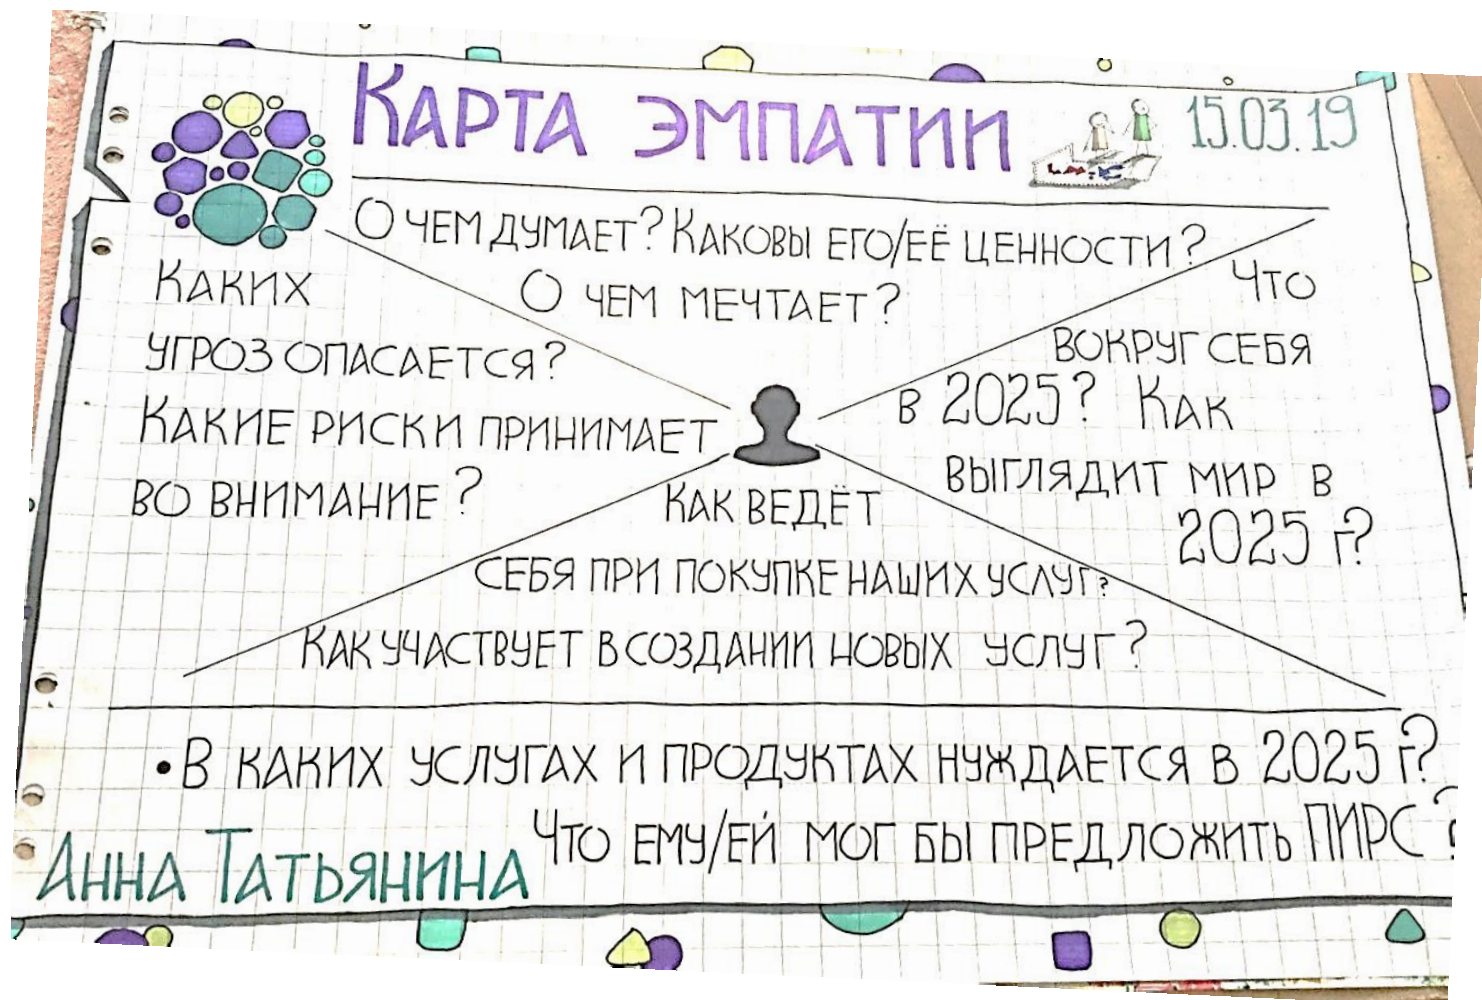 КАРТА ЭМПАТИИ
15.03.19
О ЧЕМ ДУМАЕТ? КАКОВЫ ЕГО/ЕЁ ЦЕННОСТИ?
О ЧЕМ МЕЧТАЕТ?
КАКИХ
УГРОЗ ОПАСАЕТСЯ?
КАКИЕ РИСКИ ПРИНИМАЕТ
ВО ВНИМАНИЕ?
ЧТО
ВОКРУГ СЕБЯ
В 2025? КАК
ВЫГЛЯДИТ МИР В
2025 Г?
КАК ВЕДЁТ
СЕБЯ ПРИ ПОКУПКЕ НАШИХ УСЛУГ?
КАК УЧАСТВУЕТ В СОЗДАНИИ НОВЫХ УСЛУГ?
• В КАКИХ УСЛУГАХ И ПРОДУКТАХ НУЖДАЕТСЯ В 2025 Г?
ЧТО ЕМУ/ЕЙ МОГ БЫ ПРЕДЛОЖИТЬ ПИРС?
АННА ТАТЬЯНИНА